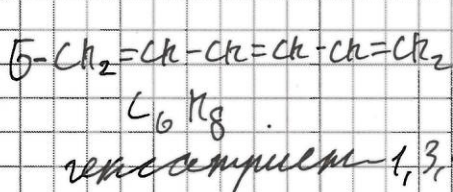 Б- CH₂=CH-CH=CH-CH=CH₂
C₆H₈.
гексатриен-1,3,